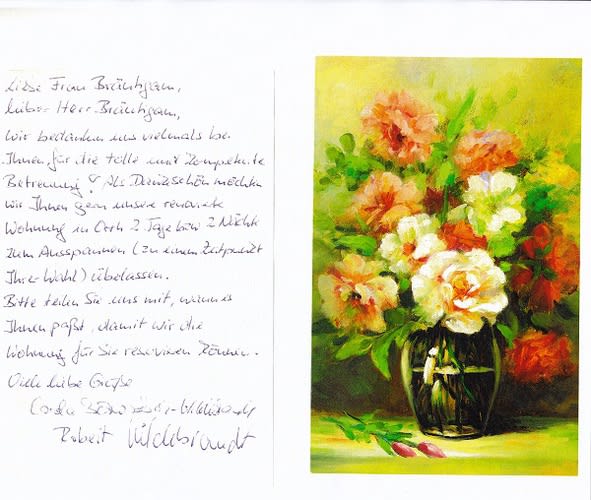 Liebe Frau Bräutigam,
lieber Herr Bräutigam,
wir bedanken uns vielmals bei
Ihnen für die tolle und kompetente
Betreuung! Als Dankeschön möchten
wir Ihnen gern unsere renovierte
Wohnung in 2 Tage bzw 2 Nächte
zum Ausspannen (zu einem Zeitpunkt
Ihrer Wahl) überlassen.
Bitte teilen Sie uns mit, wann es
Ihnen paßt, damit wir die
Wohnung für Sie reservieren können.
Viele liebe Grüße
Robert Hildebrandt